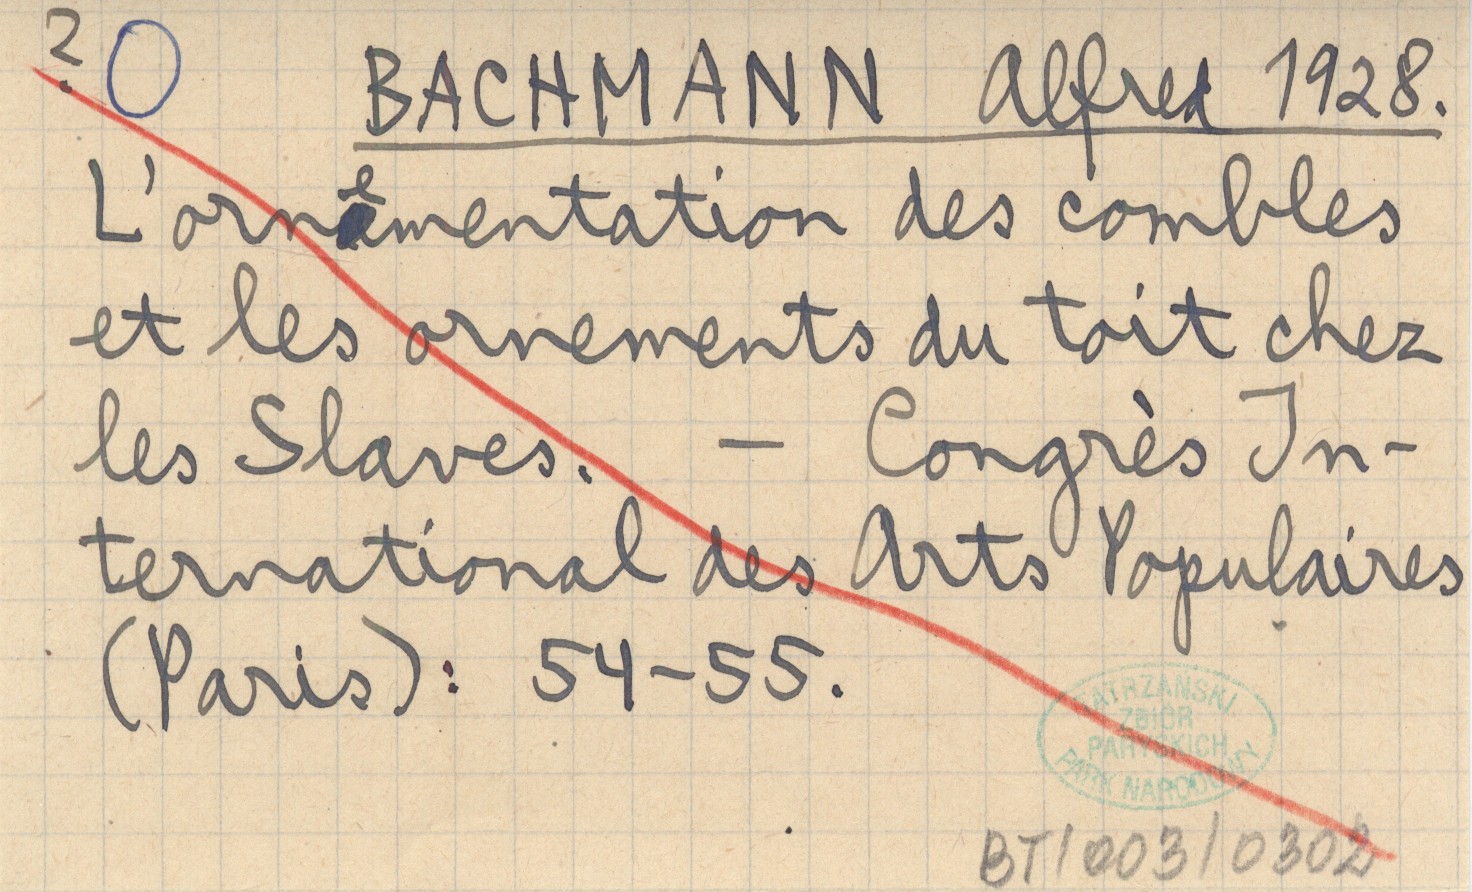 ? O BACHMANN Alfred 1928.
L'ornementation des combles
et les ornements du toit chez
les Slaves. — Congrès In-
ternational des Arts Populaires
(Paris): 54-55.
TATRZAŃSKI
ZBIÓR
PARYSKICH
PARK NARODOWY
BT/003/0302